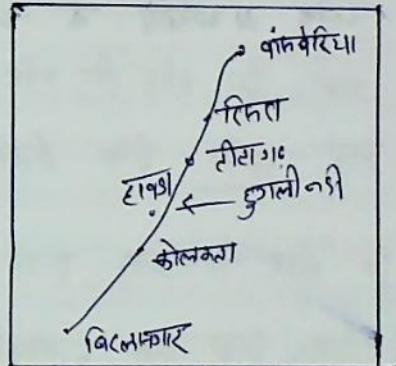 बांसबेरिया
रिसरा
टीटागढ़
हावड़ा
हुगली नदी
कोलकत्ता
बिरलानगर